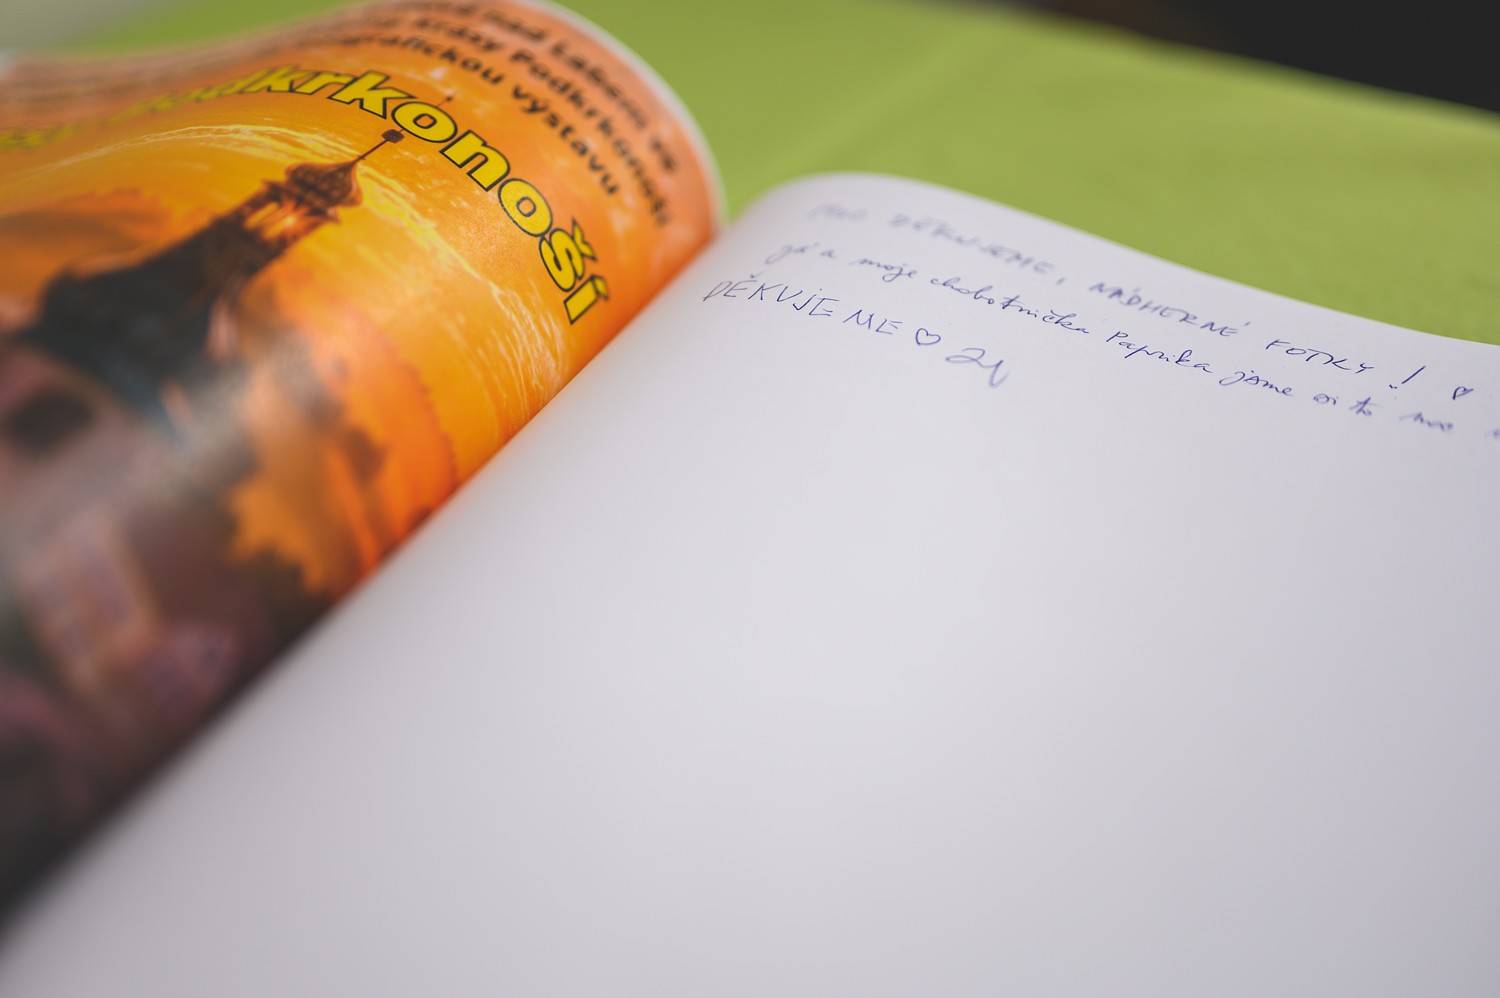 nad Labem
krásy Podkrkonoší
fotografickou výstavu
Podkrkonoší
DĚKUJEME, NÁDHERNÉ FOTKY! ♡
já a moje chobotnička Paprika jsme si to moc
DĚKUJEME ♡